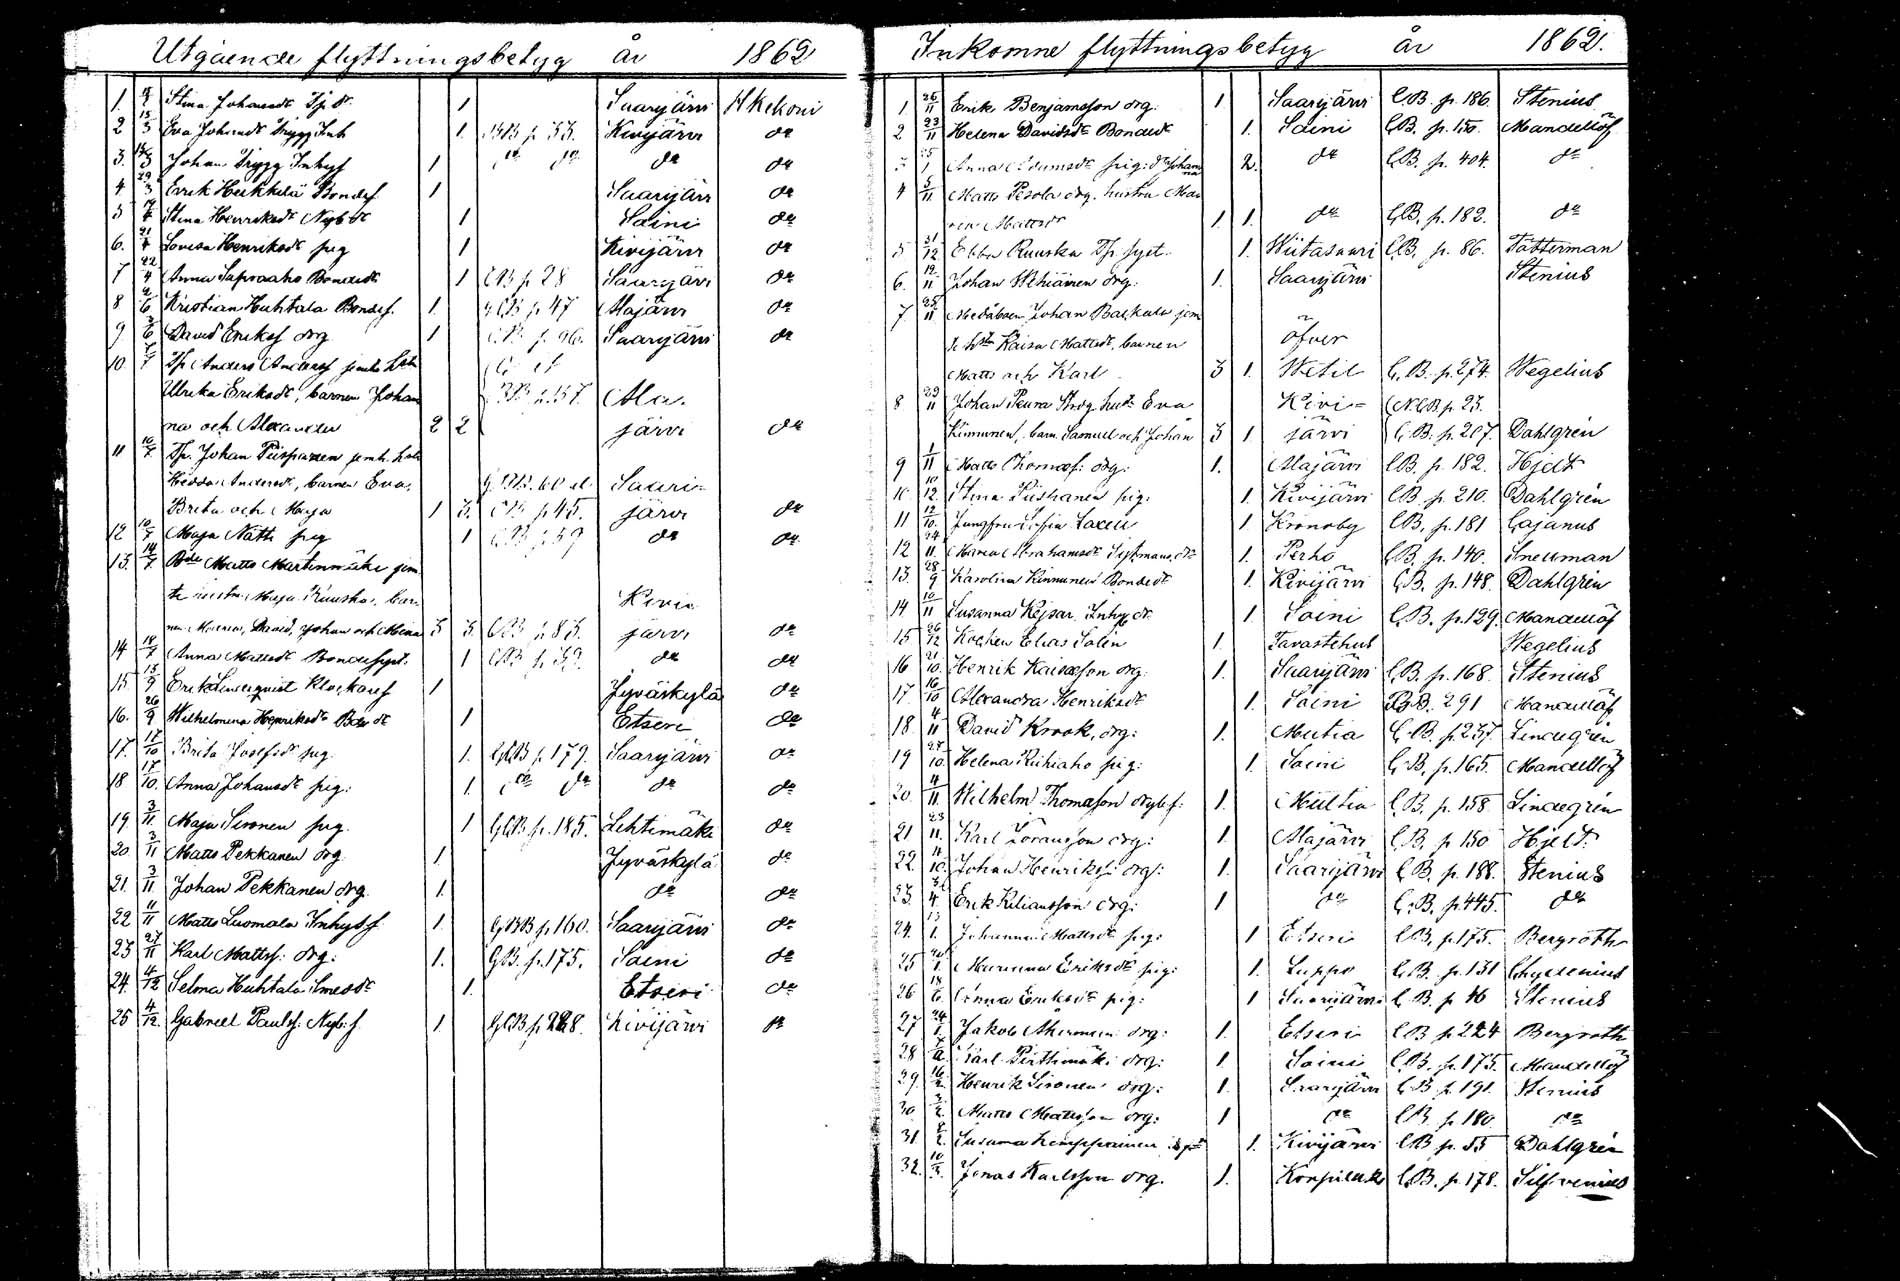 Utgående flyttningsbetyg år 1862
1. Stina Johansdr Tp. dr 1 Saarijärvi H Kekoni
2 15/3 Eva Johansdr Trygg Inh 1. BB p 33. Kivijärvi do
3. Johan Trygg Inhys 1 do do do do
4 29/3 Erik Heikkilä Bondes. 1 Saarijärvi do
5 Stina Henriksdr Nybdr 1 Soini do
6. 21/4 Lovisa Henriksdr pig 1 Kivijärvi do
7 22/4 Anna Bondedr 1 CB p 28 Saarijärvi do
8 2/6 Kristian Huhtala Bondes. 1. CB p 47 Alajärvi do
9 3/6 David Eriks drg 1 CB. p. 96. Saarijärvi do
10. Tp. Anders Anderss jemte hstr
Ulrika Eriksdr, barnen Johan BB p. 157. Ala-
na och Alexander 2 2 järvi do
11 10/7 Tp. Johan Piispanen jemt. hstr
Hedda Andersdr, barnen Eva, Saari-
Brita och Maja 1 3. CB p 45. järvi do
12 10/7 Maja Nätti pig 1 CB p 39 do do
13. 14/7 Bde Matts Martinmäki jem
te hustru Maja Ruuska, bar- Kivi-
nen David, Johan och Mina 3 3. CB p. 83. järvi do
14 18/7 Anna Mattsdr Bondesyst. 1 CB p. 39. do do
15 15/9 Erik Lindqvist Klockares 1 Jyväskylä do
16. 26/9 Wilhelmina Henriksdr Bdedr 1 Etseri do
17. 17/10 Brita Josefsdr pig 1. GCB p. 179. Saarijärvi do
18 17/10. Anna Johansdr pig: 1. do do do do
19. 3/11. Maja Sironen pig. 1 GCB p. 185. Lehtimäki do
20. 3/11 Matts Pekkanen drg 1 Jyväskylä do
21. 3/11. Johan Pekkanen drg. 1. do do
22 11/11 Matts Luomala Inhyss 1. GBB p. 160. Saarijärvi do
23 27/11 Karl Mattss: drg: 1. GB. p. 175. Soini do
24. 4/12 Selma Huhtala Smedsdr 1. Etseri do
25 4/12. Gabriel Paulss: Nyb: s. 1. GCB p. 228. Kivijärvi do
Inkomne flyttningsbetyg år 1862.
1 26/11 Erik Benjamsson drg. 1. Saarijärvi CB. p. 186. Stenius
2 23/11 Helena Davidsdr Bondedr 1. Soini CB. p. 150. Mandellöf
3 Anna Adamsdr pig: dr Johanna 2. do CB. p. 404. do
4 5/11 Matts Pesola drg. hustru Ma-
Mattsdr 1 1. do CB. p. 182. do
5 31/12 Ebba Ruuska Tp syst. 1. Wiitasaari CB. p. 86. Fätterman
6. 12/11 Johan drg: 1. Saarijärvi Stenius
7. 25/11 Johan jem
te hstr Kaisa Mattsdr, barnen öfver
Matts och Karl 3 1. Wetil C. B. p. 274. Wegelius
8 29/11 Johan Peura hustr Eva Kivi- N. CB. p. 23.
Kinnunen, barn Samuel och Johan 3 1. järvi C. B. p. 207. Dahlgrén
9 1/11 Matts Thomass: drg: 1. Alajärvi CB. p. 182. Hjelt
10. 10/12. Stina Piispanen pig: 1. Kivijärvi CB. p. 210. Dahlgrén
11 12/10. Jungfru Sofia 1. Kronoby CB. p. 181 Cajanus
12 24/11. Maria Abrahamsdr dr 1. Perho CB. p. 140. Sneuman
13. 28/9 Karolina Kinnunen Bondedr 1. Kivijärvi CB. p. 148. Dahlgrén
14 10/11 Susanna Kejsar, Inhys. dr. 1 Soini CB. p. 129. Mandellöf
15 26/12 Elias Salin 1. Tavastehus Wegelius
16 21/10. Henrik Kaisasson drg. 1. Saarijärvi CB. p. 168. Stenius
17. 16/10 Alexandra Henriksdr 1. Soini B. B. 291 Mandellöf
18. 4/11 David Krook, drg: 1. Multia C. B. p. 237. Lindegrén
19 27/10. Helena Riihiaho pig: 1. Soini C. B. p. 165. Mandellöf
20. 4/11. Wilhelm Thomasson drgb. s: 1. Multia C. B. p. 158 Lindegrén
21 23/11. Karl drg: 1. Alajärvi CB. p 150 Hjelt.
22. 11/10. Johan Henrikss: drg: 1. Saarijärvi C. B. p. 188. Stenius
23. Erik Kiliansson drg: 1 do C. B. p. 445. do
24. 13/1. Johanna Mattsdr pig: 1 Etseri CB. p. 175. Bergroth
25 Eriksdr pig: 1. Lappo CB. p. 131 Chydenius
26 18/6. Anna Eriksdr pig: 1 Saarijärvi C. B. p 46 Stenius
27 24/1. Jakob Åkerman drg: 1. Etseri CB p 224 Bergroth
28 Karl Perttimäki drg: 1 Soini CB. p. 175. Mandellöf
29. 16/2 Henrik Sironen drg: 1. Saarijärvi CB p. 191. Stenius
30. 3/2. Matts Mattsson drg: 1 do CB. p. 180. do
31. 8/2. Susanna Kemppainen 1. Kivijärvi CB p. 55 Dahlgrén
32. 10/3. Jonas Karlsson drg. 1. Korpilaks CB. p. 178. Silfvenius